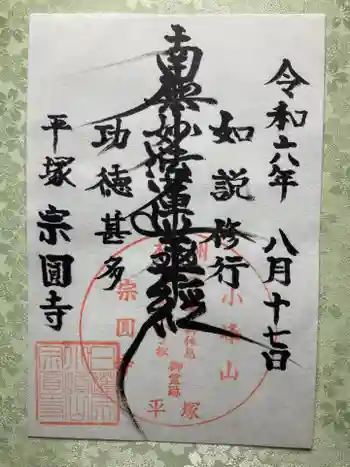 令和六年 八月十七日
如説修行
南無妙法蓮華経
功徳甚多
平塚 宗圓寺
小峰山
宗圓
御霊跡
平塚